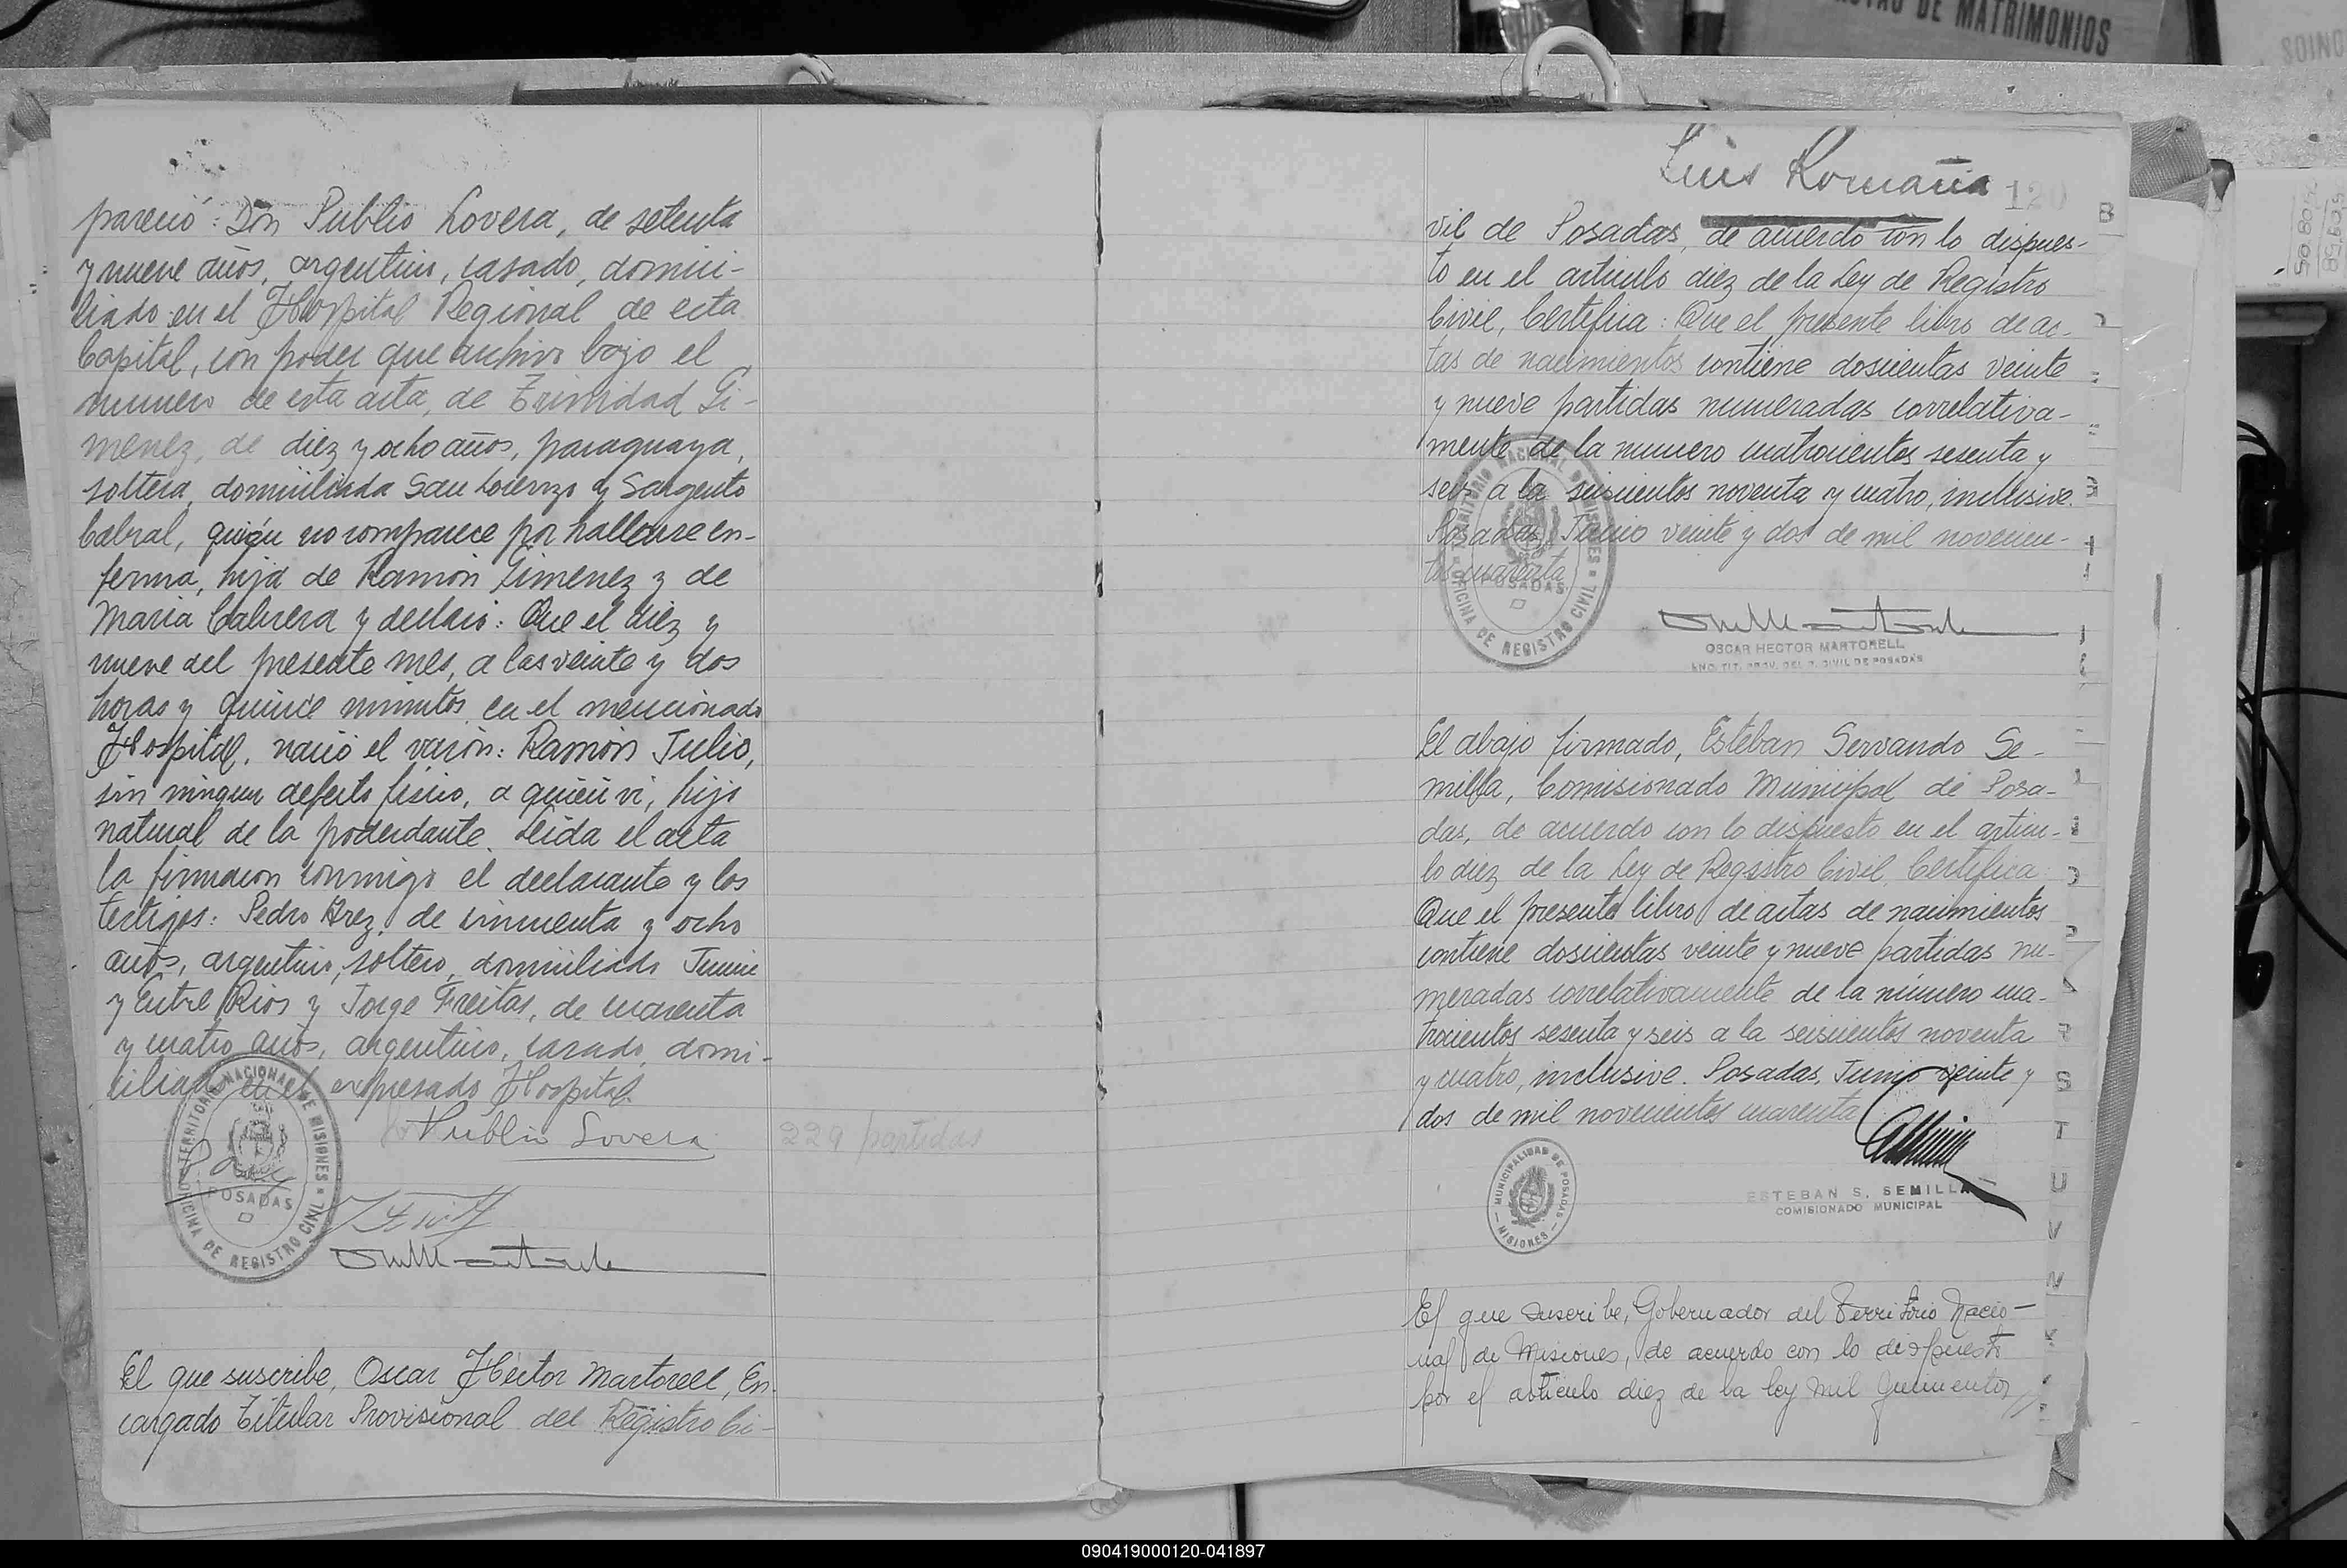 pareció: Don Publio Lovera, de setenta
y nueve años, argentino, casado, domici-
liado en el Hospital Regional de esta
Capital, con poder que archivo bajo el
numero de esta acta, de Trinidad Gi-
menez, de diez y ocho años, paraguaya,
soltera, domiciliada San Lorenzo y Sargento
Cabral, quién no comparece por hallarse en-
ferma, hija de Ramón Gimenez y de
Maria Cabrera y declaró: Que el diez y
nueve del presente mes, a las veinte y dos
horas y quince minutos, en el mencionado
Hospital, nació el varón: Ramón Julio,
sin ningun defecto físico, a quién vi, hijo
natural de la poderdante. Leida el acta
la firmaron conmigo el declarante y los
testigos: Pedro Arez, de cincuenta y ocho
años, argentino, soltero, domiciliado Junin
y Entre Rios y Jorge Freitas, de cuarenta
y cuatro años, argentino, casado, domi-
ciliado en el expresado Hospital.
Publio Lovera
229 partidas
TERRITORIO NACIONAL DE MISIONES
POSADAS
OFICINA DE REGISTRO CIVIL
El que suscribe, Oscar Héctor Martorell, En-
cargado Titular Provisional del Registro Ci-
Luis Romaña
120
vil de Posadas, de acuerdo con lo dispues-
to en el articulo diez de la Ley de Registro
Civil, Certifica: Que el presente libro de ac-
tas de nacimientos contiene doscientas veinte
y nueve partidas numeradas correlativa-
mente de la numero cuatrocientos sesenta y
seis a la seiscientos noventa y cuatro, inclusive.
Posadas, Junio veinte y dos de mil novecien-
tos cuarenta
TERRITORIO NACIONAL DE MISIONES
POSADAS
OFICINA DE REGISTRO CIVIL
OSCAR HECTOR MARTORELL
ENC. TIT. PROV. DEL R. CIVIL DE POSADAS
El abajo firmado, Esteban Servando Se-
milla, Comisionado Municipal de Posa-
das, de acuerdo con lo dispuesto en el artícu-
lo diez de la Ley de Registro Civil, Certifica:
Que el presente libro de actas de nacimientos
contiene doscientas veinte y nueve partidas nu-
meradas correlativamente de la número cua-
trocientos sesenta y seis a la seiscientos noventa
y cuatro, inclusive. Posadas, Junio veinte y
dos de mil novecientos cuarenta
MUNICIPALIDAD DE POSADAS
MISIONES
ESTEBAN S. SEMILLA
COMISIONADO MUNICIPAL
El que suscribe, Gobernador del Territorio Nacio-
nal de Misiones, de acuerdo con lo dispuesto
por el artículo diez de la ley mil quinientos
DE MATRIMONIOS
090419000120-041897